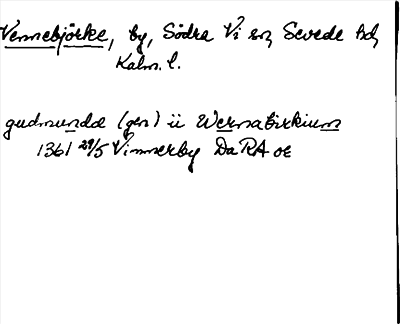 Vennebjörke, by, Södra Vi sn, Sevede hd,
Kalm. l.
gudmundæ (gen) ii Wernabirkium
1361 29/5 Vimmerby DaRA or